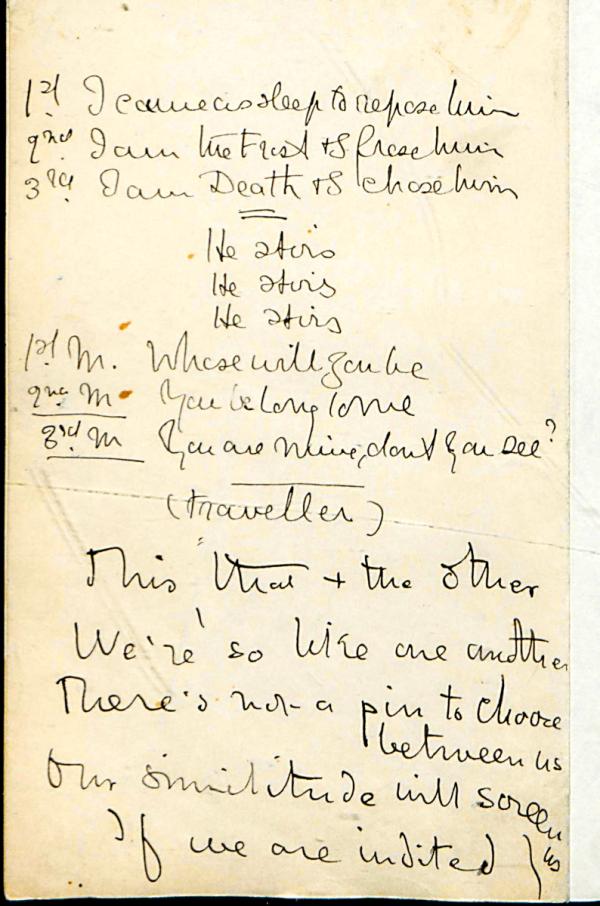 1st I came as sleep to repose him
2nd I am the Frost & I froze him
3rd I am Death & I chose him
He stirs
He stirs
He stirs
1st M. Whose will you be
2nd M You belong to me
3rd M You are mine, don't you see?
(traveller)
This that + the other
We're so like one another
There's not a pin to choose
between us
Our similitude will screen
us
If we are indited